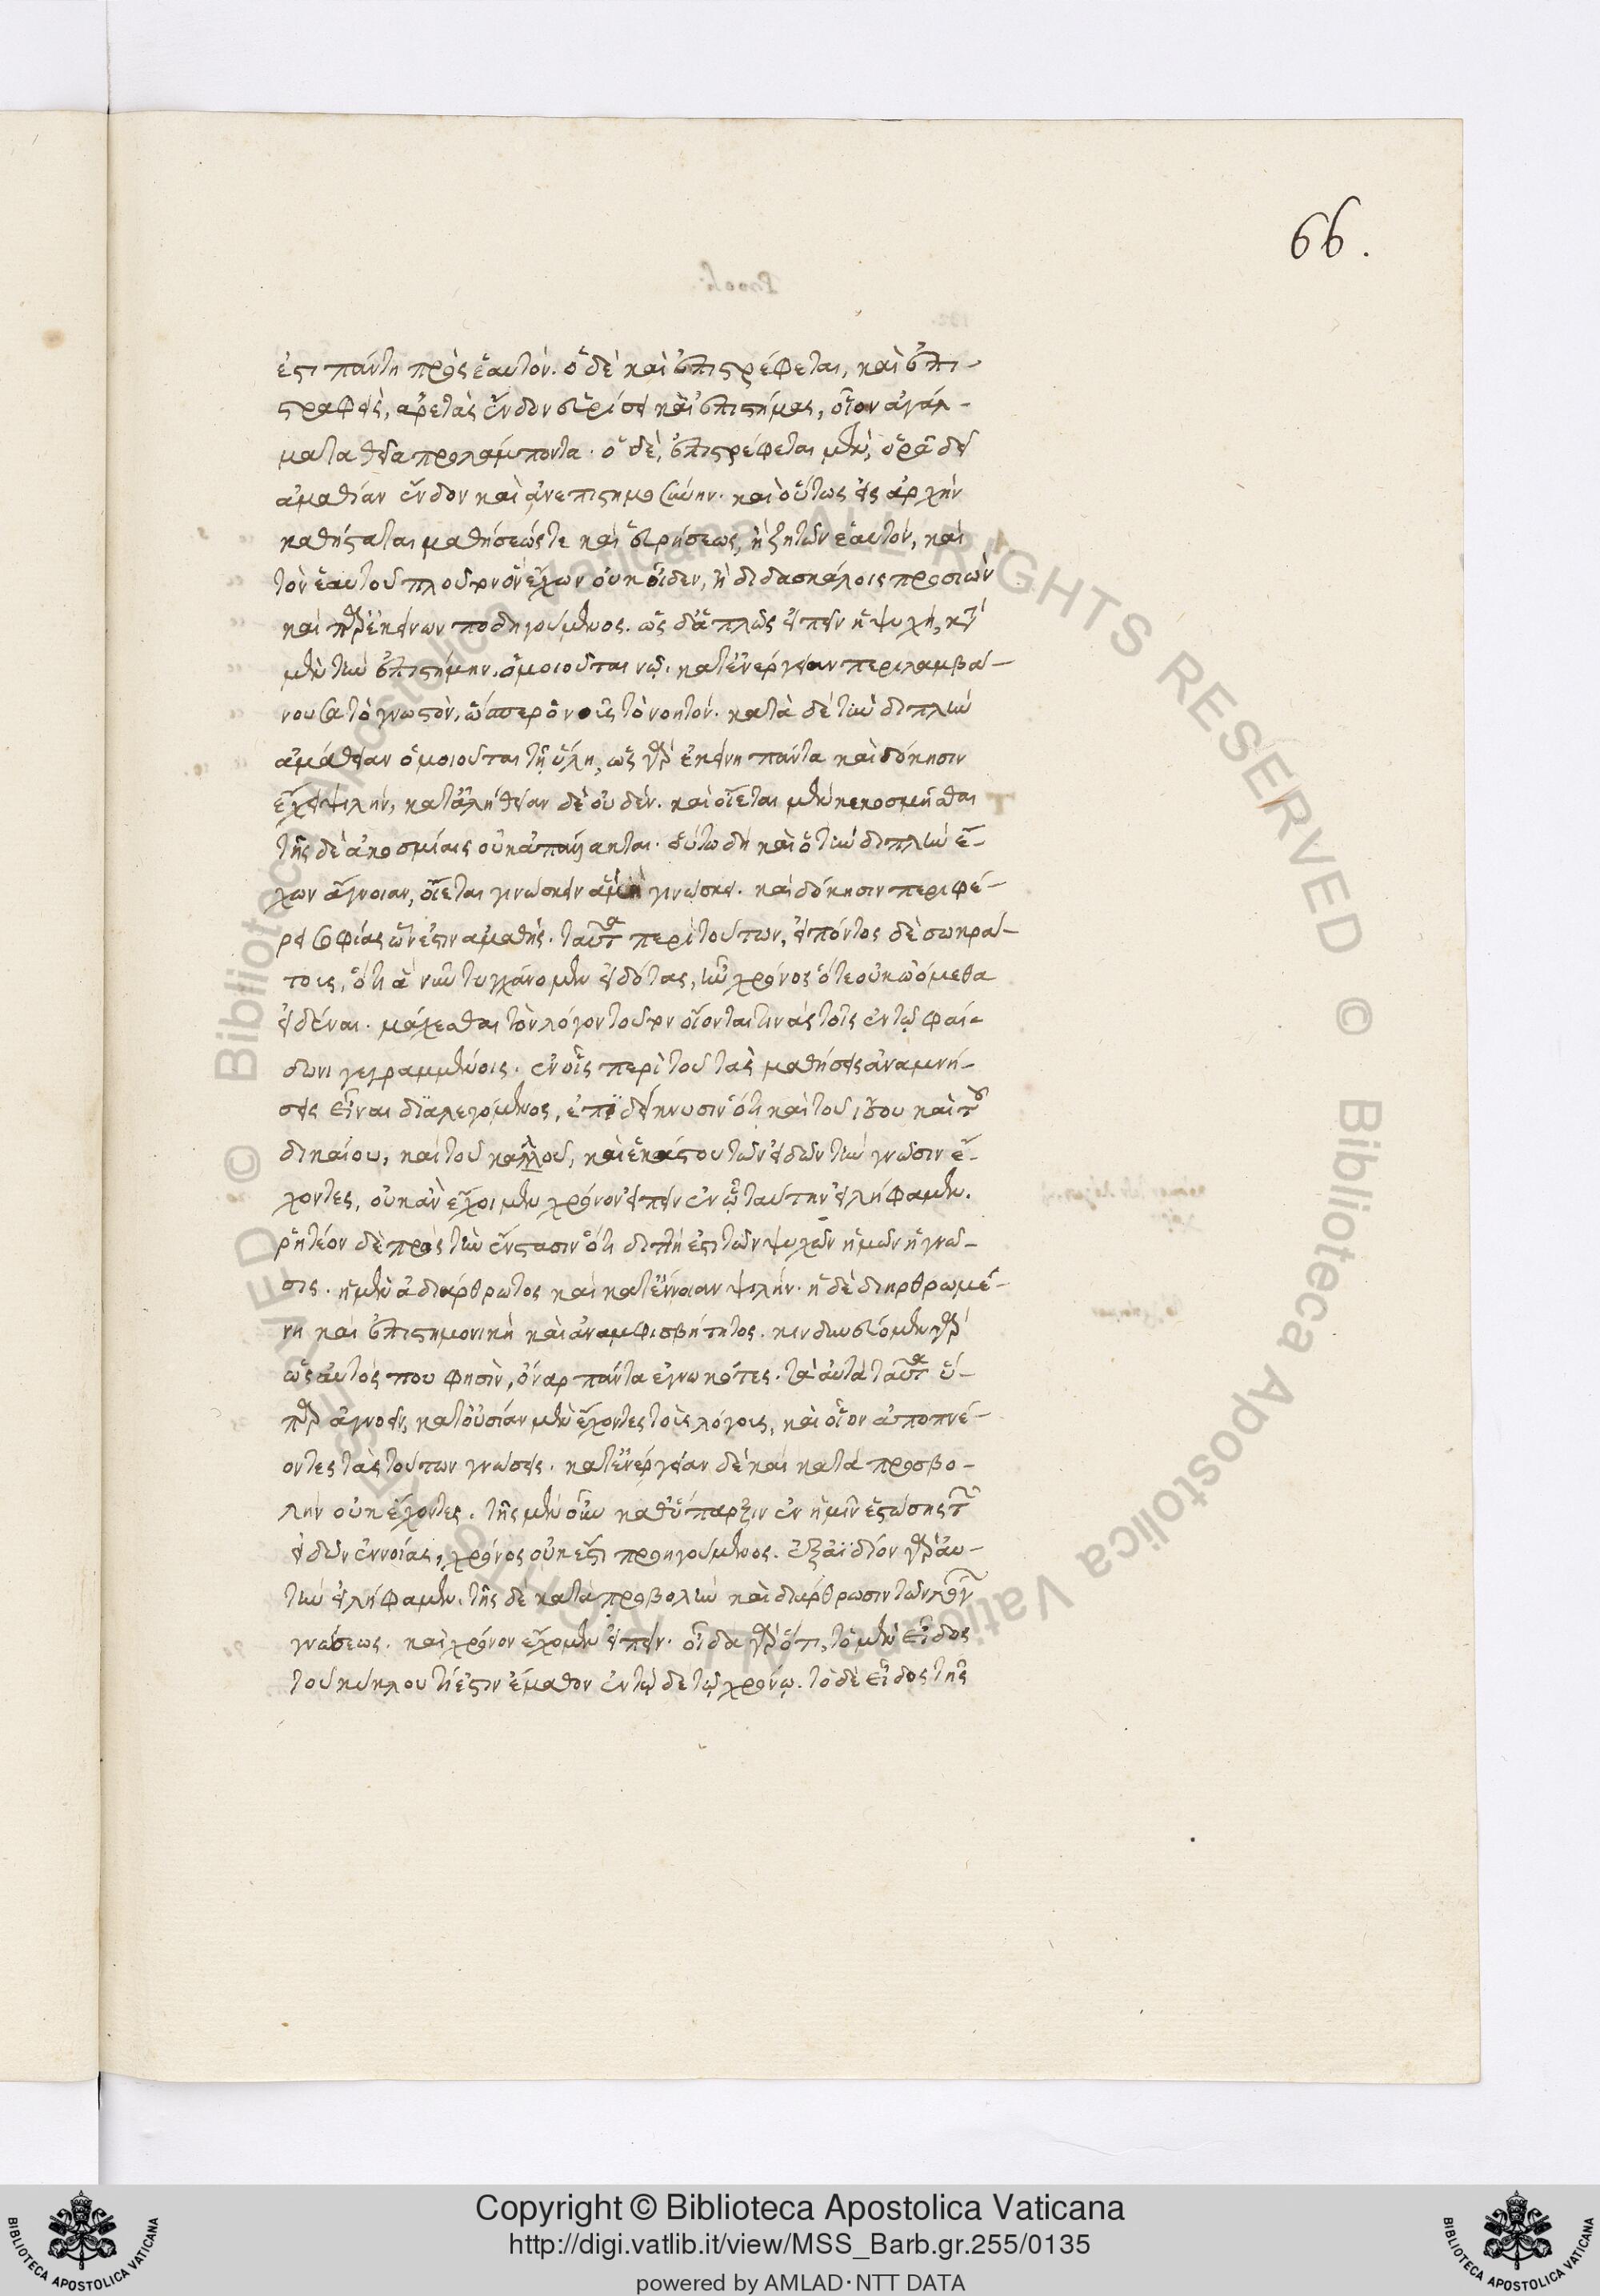 66.
ἐστι πάντη πρὸς ἑαυτόν. ὁ δὲ καὶ ἐπιστρέφεται, καὶ ἐπι-
στραφεὶς, ἀρετὰς ἔνδον εὑρίσει καὶ ἐπιστήμας, οἷον ἀγάλ-
ματα θεῖα προλάμποντα. ὁ δὲ, ἐπιστρέφεται μὲν, ὁρᾶ δὲ
ἀμαθίαν ἔνδον καὶ ἀνεπιστημοσύνην. καὶ οὕτως εἰς ἀρχὴν
καθίσταται μαθήσεώς τε καὶ εὑρήσεως, ἢ ζητῶν ἑαυτόν, καὶ
τὸν ἑαυτοῦ πλοῦτον ὃν ἔχων οὐκ οἶδεν, ἢ διδασκάλοις προσιὼν
καὶ παρ' ἐκείνων ποδηγούμενος. ὡς δ' ἁπλῶς εἰπεῖν ἡ ψυχή, κατὰ
μὲν τὴν ἐπιστήμην, ὁμοιοῦται νῷ. κατ' ἐνέργειαν περιλαμβά-
νουσα τὸ γνωστὸν, ὥσπερ ὁ νοῦς τὸ νοητόν. κατὰ δὲ τὴν διπλῆν
ἀμάθειαν ὁμοιοῦται τῇ ὕλῃ, ὡς γὰρ ἐκείνη πάντα καὶ δόκησιν
ἔχει ψιλήν, κατ' ἀλήθειαν δὲ οὐδέν. καὶ οἴεται μὲν κεκοσμῆσθαι
τῆς δὲ ἀκοσμίας οὐκ ἀπήλλακται. οὕτω δὴ καὶ ὁ τὴν διπλῆν ἔ-
χων ἄγνοιαν, οἴεται γινώσκειν ἃ μὴ γινώσκει. καὶ δόκησιν περιφέ-
ρει σοφίας ὧν ἐστιν ἀμαθής. ταῦτα περὶ τούτων, εἰπόντος δὲ σωκρά-
τους, ὅτι ἃ νῦν τυγχάνομεν εἰδότας, ἦν χρόνος ὅτε οὐκ ᾠόμεθα
εἰδέναι. μάχεσθαι τὸν λόγον τοῦτον οἴονταί τινὰς τοῖς ἐν τῷ φαί-
δωνι γεγραμμένοις. ἐν οἷς περὶ τοῦ τὰς μαθήσεις ἀναμνή-
σεις εἶναι διαλεγόμενος, ἐπιδείκνυσιν ὅτι καὶ τοῦ ἴσου καὶ τοῦ
δικαίου, καὶ τοῦ καλοῦ, καὶ ἑκάστου τῶν εἰδῶν τὴν γνῶσιν ἔ-
χοντες, οὐκ ἂν ἔχοιμεν χρόνον εἰπεῖν ἐν ᾧ ταύτην εἰλήφαμεν.
ῥητέον δὲ πρὸς τὴν ἔνστασιν ὅτι διττή ἐστι τῶν ψυχῶν ἡμῶν ἡ γνῶ-
σις. ἡ μὲν ἀδιάρθρωτος καὶ κατ' ἔννοιαν ψιλήν. ἡ δὲ διηρθρωμέ-
νη καὶ ἐπιστημονικὴ καὶ ἀναμφισβήτητος. κινδυνεύομεν γὰρ
ὡς αὐτός που φησὶν, ὄναρ πάντα ἐγνωκότες. τὰ αὐτὰ ταῦτα ὕ-
παρ ἀγνοεῖν, κατ' οὐσίαν μὲν ἔχοντες τοὺς λόγους, καὶ οἷον ἀποπνέ-
οντες τὰς τούτων γνώσεις. κατ' ἐνέργειαν δὲ καὶ κατὰ προσβο-
λὴν οὐκ ἔχοντες. τῆς μὲν οὖν καθ' ὕπαρξιν ἐν ἡμῖν ἑστώσης τῶν
εἰδῶν ἐννοίας, χρόνος οὐκ ἔστι προηγούμενος. ἐξ ἀϊδίου γὰρ αὐ-
τὴν εἰλήφαμεν. τῆς δὲ κατὰ προβολὴν καὶ διάρθρωσιν τῶν λόγων
γνώσεως. καὶ χρόνον ἔχομεν εἰπεῖν. οἶδα γὰρ ὅτι, τὸ μὲν εἶδος
τοῦ κύκλου τί ἐστιν ἔμαθον ἐν τῷδε τῷ χρόνῳ. τὸ δὲ εἶδος τῆς
Copyright © Biblioteca Apostolica Vaticana
http://digi.vatlib.it/view/MSS_Barb.gr.255/0135
powered by AMLAD·NTT DATA